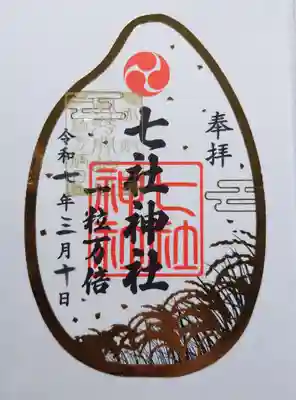 奉拝
七社神社
七社神社
一粒万倍
令和七年三月十日